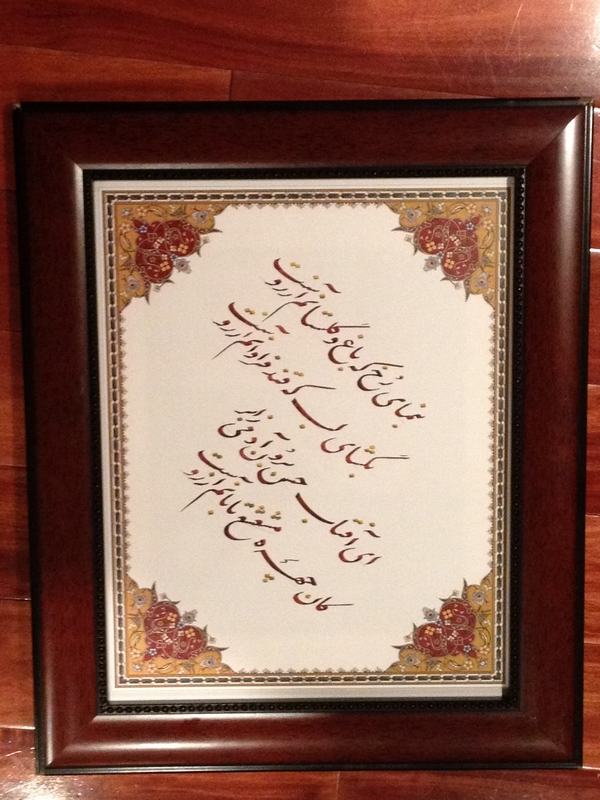 بنمای رُخ که باغ و گلستانم آرزوست
بگشای لب که قند فراوانم آرزوست
ای آفتاب حسن برون آ دمی ز ابر
کان چهرهٔ مشعشع تابانم آرزوست